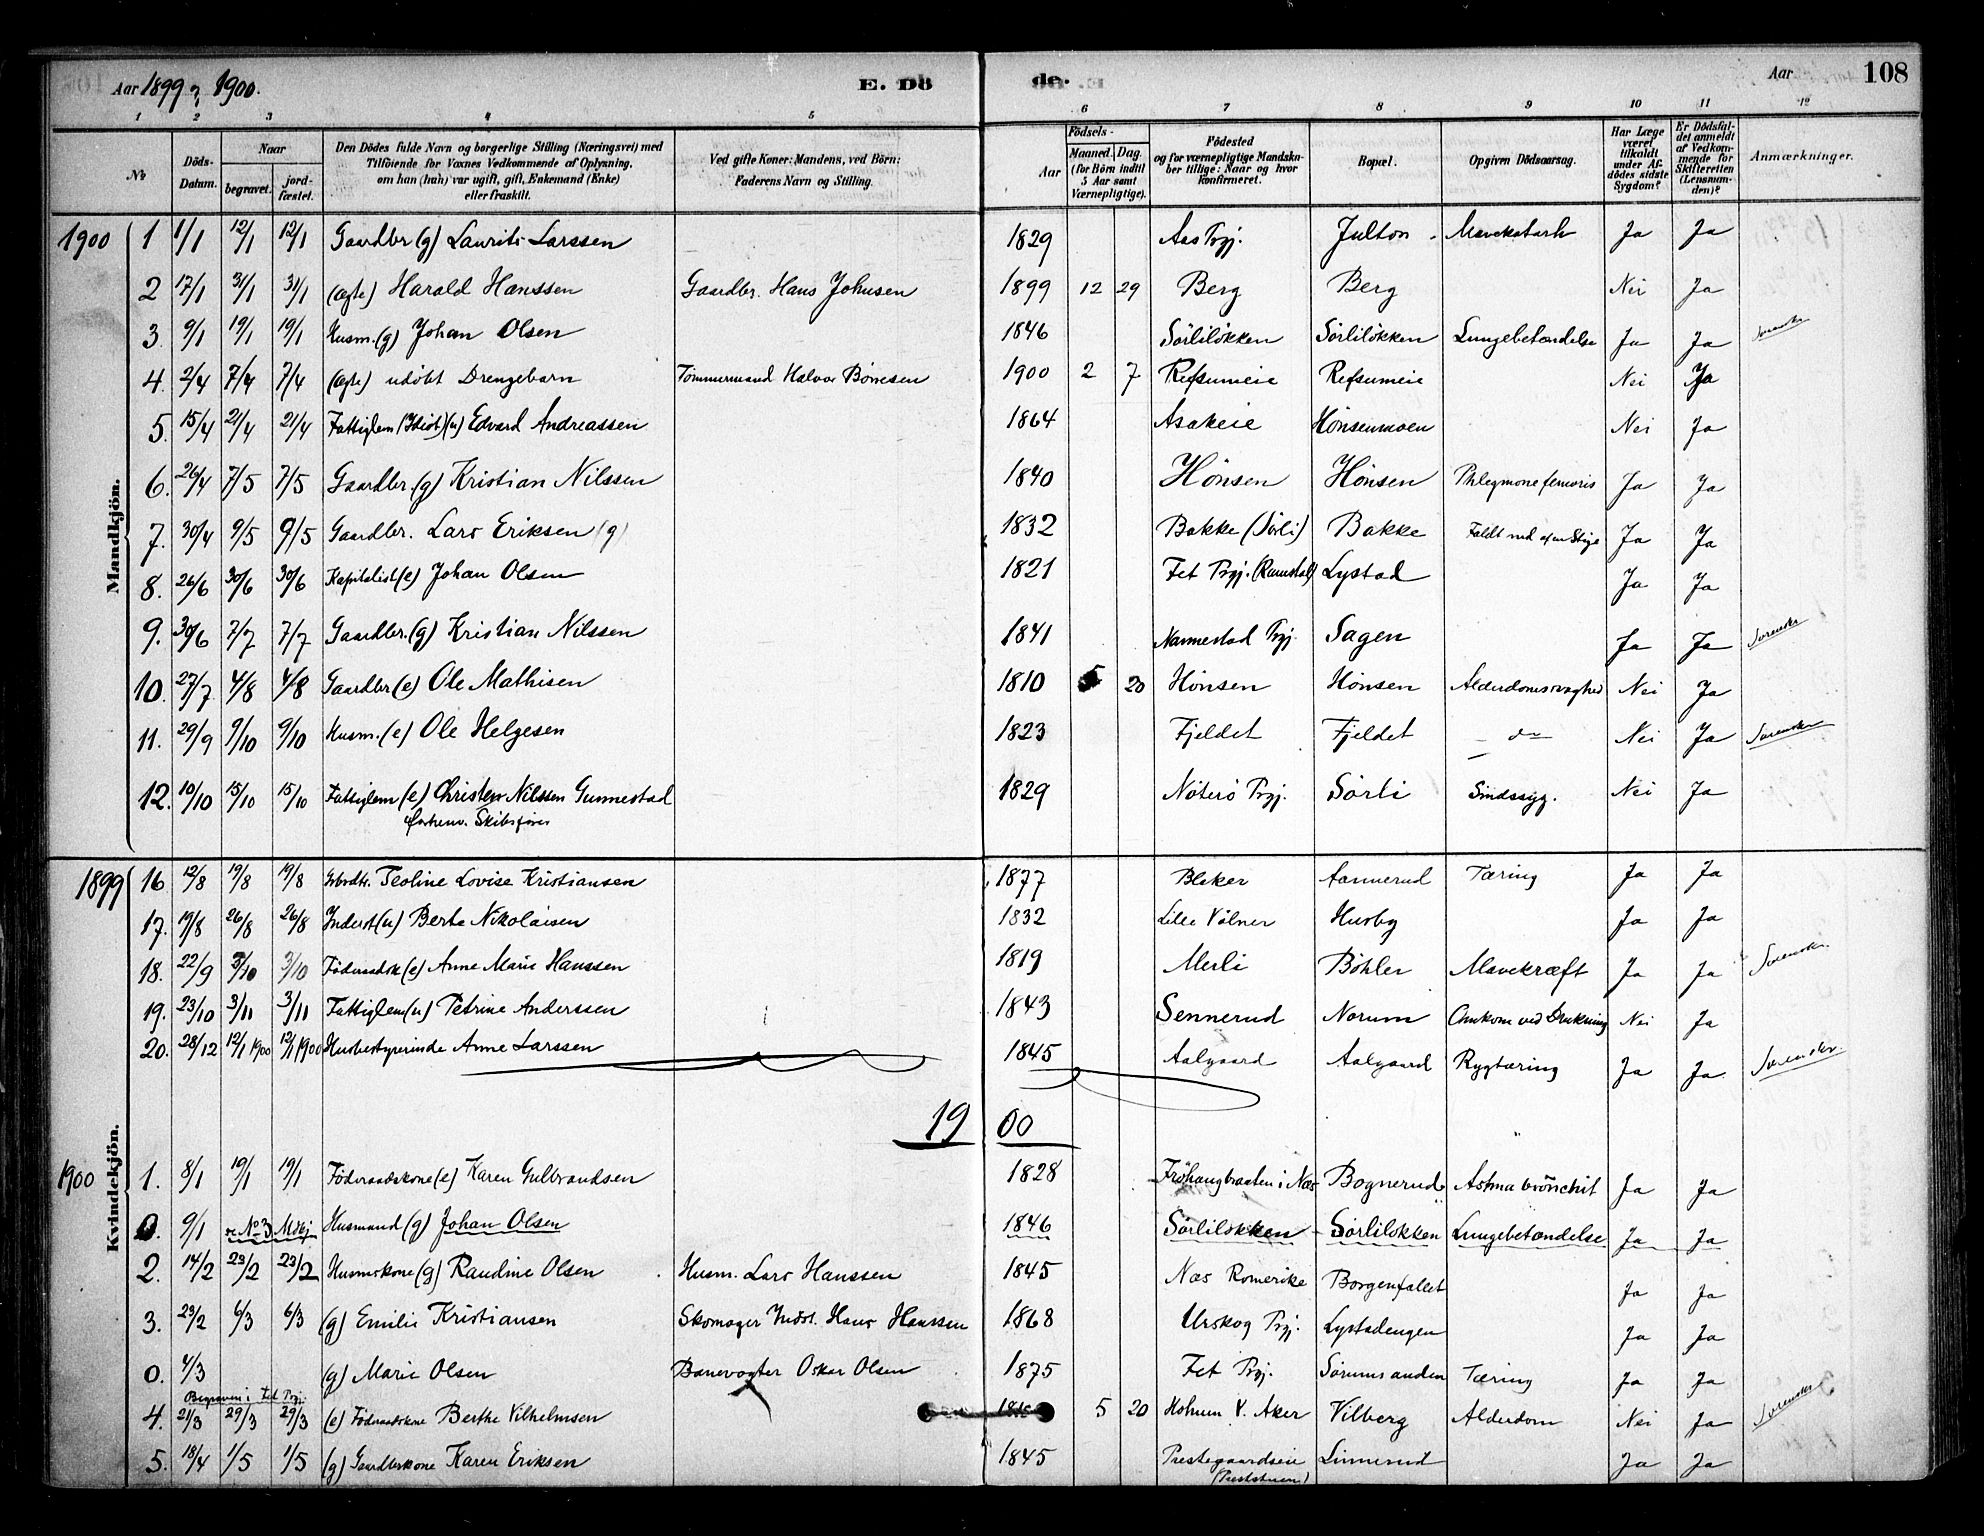 Aar 1899 & 1900. E. Dö de. Aar 108
1 2 3 4 5 6 7 8 9 10 11 12
No
Döds-Datum.
Naar
begravet.
jordfæstet.
Den Dödes fulde Navn og borgerlige Stilling (Næringsvei) med
Tilföiende for Voxnes Vedkommende af Oplysning,
om han (hun) var ugift, gift, Enkemand (Enke)
eller fraskilt.
Ved gifte Koner: Mandens, ved Börn:
Faderens Navn og Stilling.
Födsels-
Aar
Maaned. Dag.
(for Börn indtil
5 Aar samt
Værnepligtige).
Födested
og for værnepligtige Mandskaber tillige: Naar og hvor
konfirmeret.
Bopæl.
Opgiven Dödsaarsag.
Har Læge
været
tilkaldt
under Afdödes sidste
Sygdom?
Er Dödsfaldet anmeldt
af Vedkommende for
Skifteretten
(Lensmanden)?
Anmærkninger.
Mandkjön.
1900 1 1/1 12/1 12/1 Gaardbr (g) Laurits Larssen 1829 Aas Prgj. Julton Mavekatarh Ja Ja
2 17/1 31/1 31/1 (ægte) Harald Hanssen Gaardbr. Hans Johnsen 1899 12 29 Berg Berg Nei Ja
3. 9/1 19/1 19/1 Husm. (g) Johan Olsen 1846 Sörliløkken Sörliløkken Lungebetændelse Ja Ja
4. 2/4 7/4 7/4 (ægte) udöbt Drengebarn Tömmermand Halvor Börresen 1900 2 7 Refsumeie Refsumeie Nei Ja
5. 15/4 21/4 21/4 Fattiglem (Idiot) (u) Edvard Andreassen 1864 Asakeie Hönsenmoen Nei Ja
6. 26/4 7/5 7/5 Gaardbr. (g) Kristian Nilssen 1840 Hönsen Hönsen Phlegmone femoris Ja Ja
7. 30/4 9/5 9/5 Gaardbr. Lars Eriksen (g) 1832 Bakke (Sörli) Bakke Faldt ned af en Stige Ja Ja
8. 26/6 30/6 30/6 Kapitalist (e) Johan Olsen 1821 Fet Prgj. (Ramstad) Lystad Ja Ja
9. 30/6 7/7 7/7 Gaardbr. (g) Kristian Nilssen 1841 Nannestad Prgj. Sagen Ja Ja Sorenskr
10. 27/7 4/8 4/8 Gaardbr (e) Ole Mathisen 1810 5 20 Hönsen Hönsen Alderdomssvaghed Nei Ja
11. 29/9 9/10 9/10 Husm. (e) Ole Helgesen 1823 Fjeldet Fjeldet do Nei Ja Sorenskr
12. 10/10 15/10 15/10 Fattiglem (e) Christen Nilssen Gunnestad 1829 Nöterö Prgj. Sörli Sindssyg. Nei Ja
forhenv. Skibsförer
Kvindekjön.
1899 16 12/8 19/8 19/8 Teoline Lovise Kristiansen 1877 Blaker Aannerud Tæring Ja Ja
17. 19/8 26/8 26/8 Inderst (u) Berte Nikolaisen 1832 Lille Völner Husby Ja Ja
18. 22/9 3/10 3/10 Föderaadsk (e) Anne Marie Hanssen 1819 Merli Böhler Mavekræft Ja Ja Sorenskr.
19. 23/10 3/11 3/11 Fattiglem (u) Petrine Anderssen 1843 Sennerud Norum Omkom ved Drukning Nei Ja
20. 28/12 12/1 1900 12/1 1900 Husbestyrerinde Anne Larssen 1845 Aalgaard Aalgaard Rygtæring Ja Ja Sorenskr.
19 00
1900 1. 8/1 19/1 19/1 Föderaadskone (e) Karen Gulbrandsen 1828 Fröhaugbraaten i Næs Bognerud Astma bronchit Ja Ja
0. 9/1 se No 3 Mdkj Husmand (g) Johan Olsen 1846 Sörliløkken Sörliløkken Lungebetændelse Ja Ja
2. 14/2 23/2 23/2 Husmskone (g) Randine Olsen Husm. Lars Hanssen 1845 Næs Romerike Borgenfallet Ja Ja
3. 23/2 6/3 6/3 (g) Emilie Kristiansen Skomager Inderst. Hans Hanssen 1868 Urskog Prgj. Lystadengen Ja Ja
0. 4/3 (g) Marie Olsen Banevogter Oskar Olsen 1875 Fet Prgj. Sörumsanden Tæring Ja Ja
Begraven i Fet Prgj.
4. 21/3 29/3 29/3 (e) Föderaadskone Berthe Vilhelmsen 5 20 Holmen V. Aker Vilberg Alderdom Nei Ja Sorenskr
5. 18/4 1/5 1/5 (g) Gaardbrkone Karen Eriksen 1845 Prestegaardseie Linnerud Ja Ja
(Preststuen)